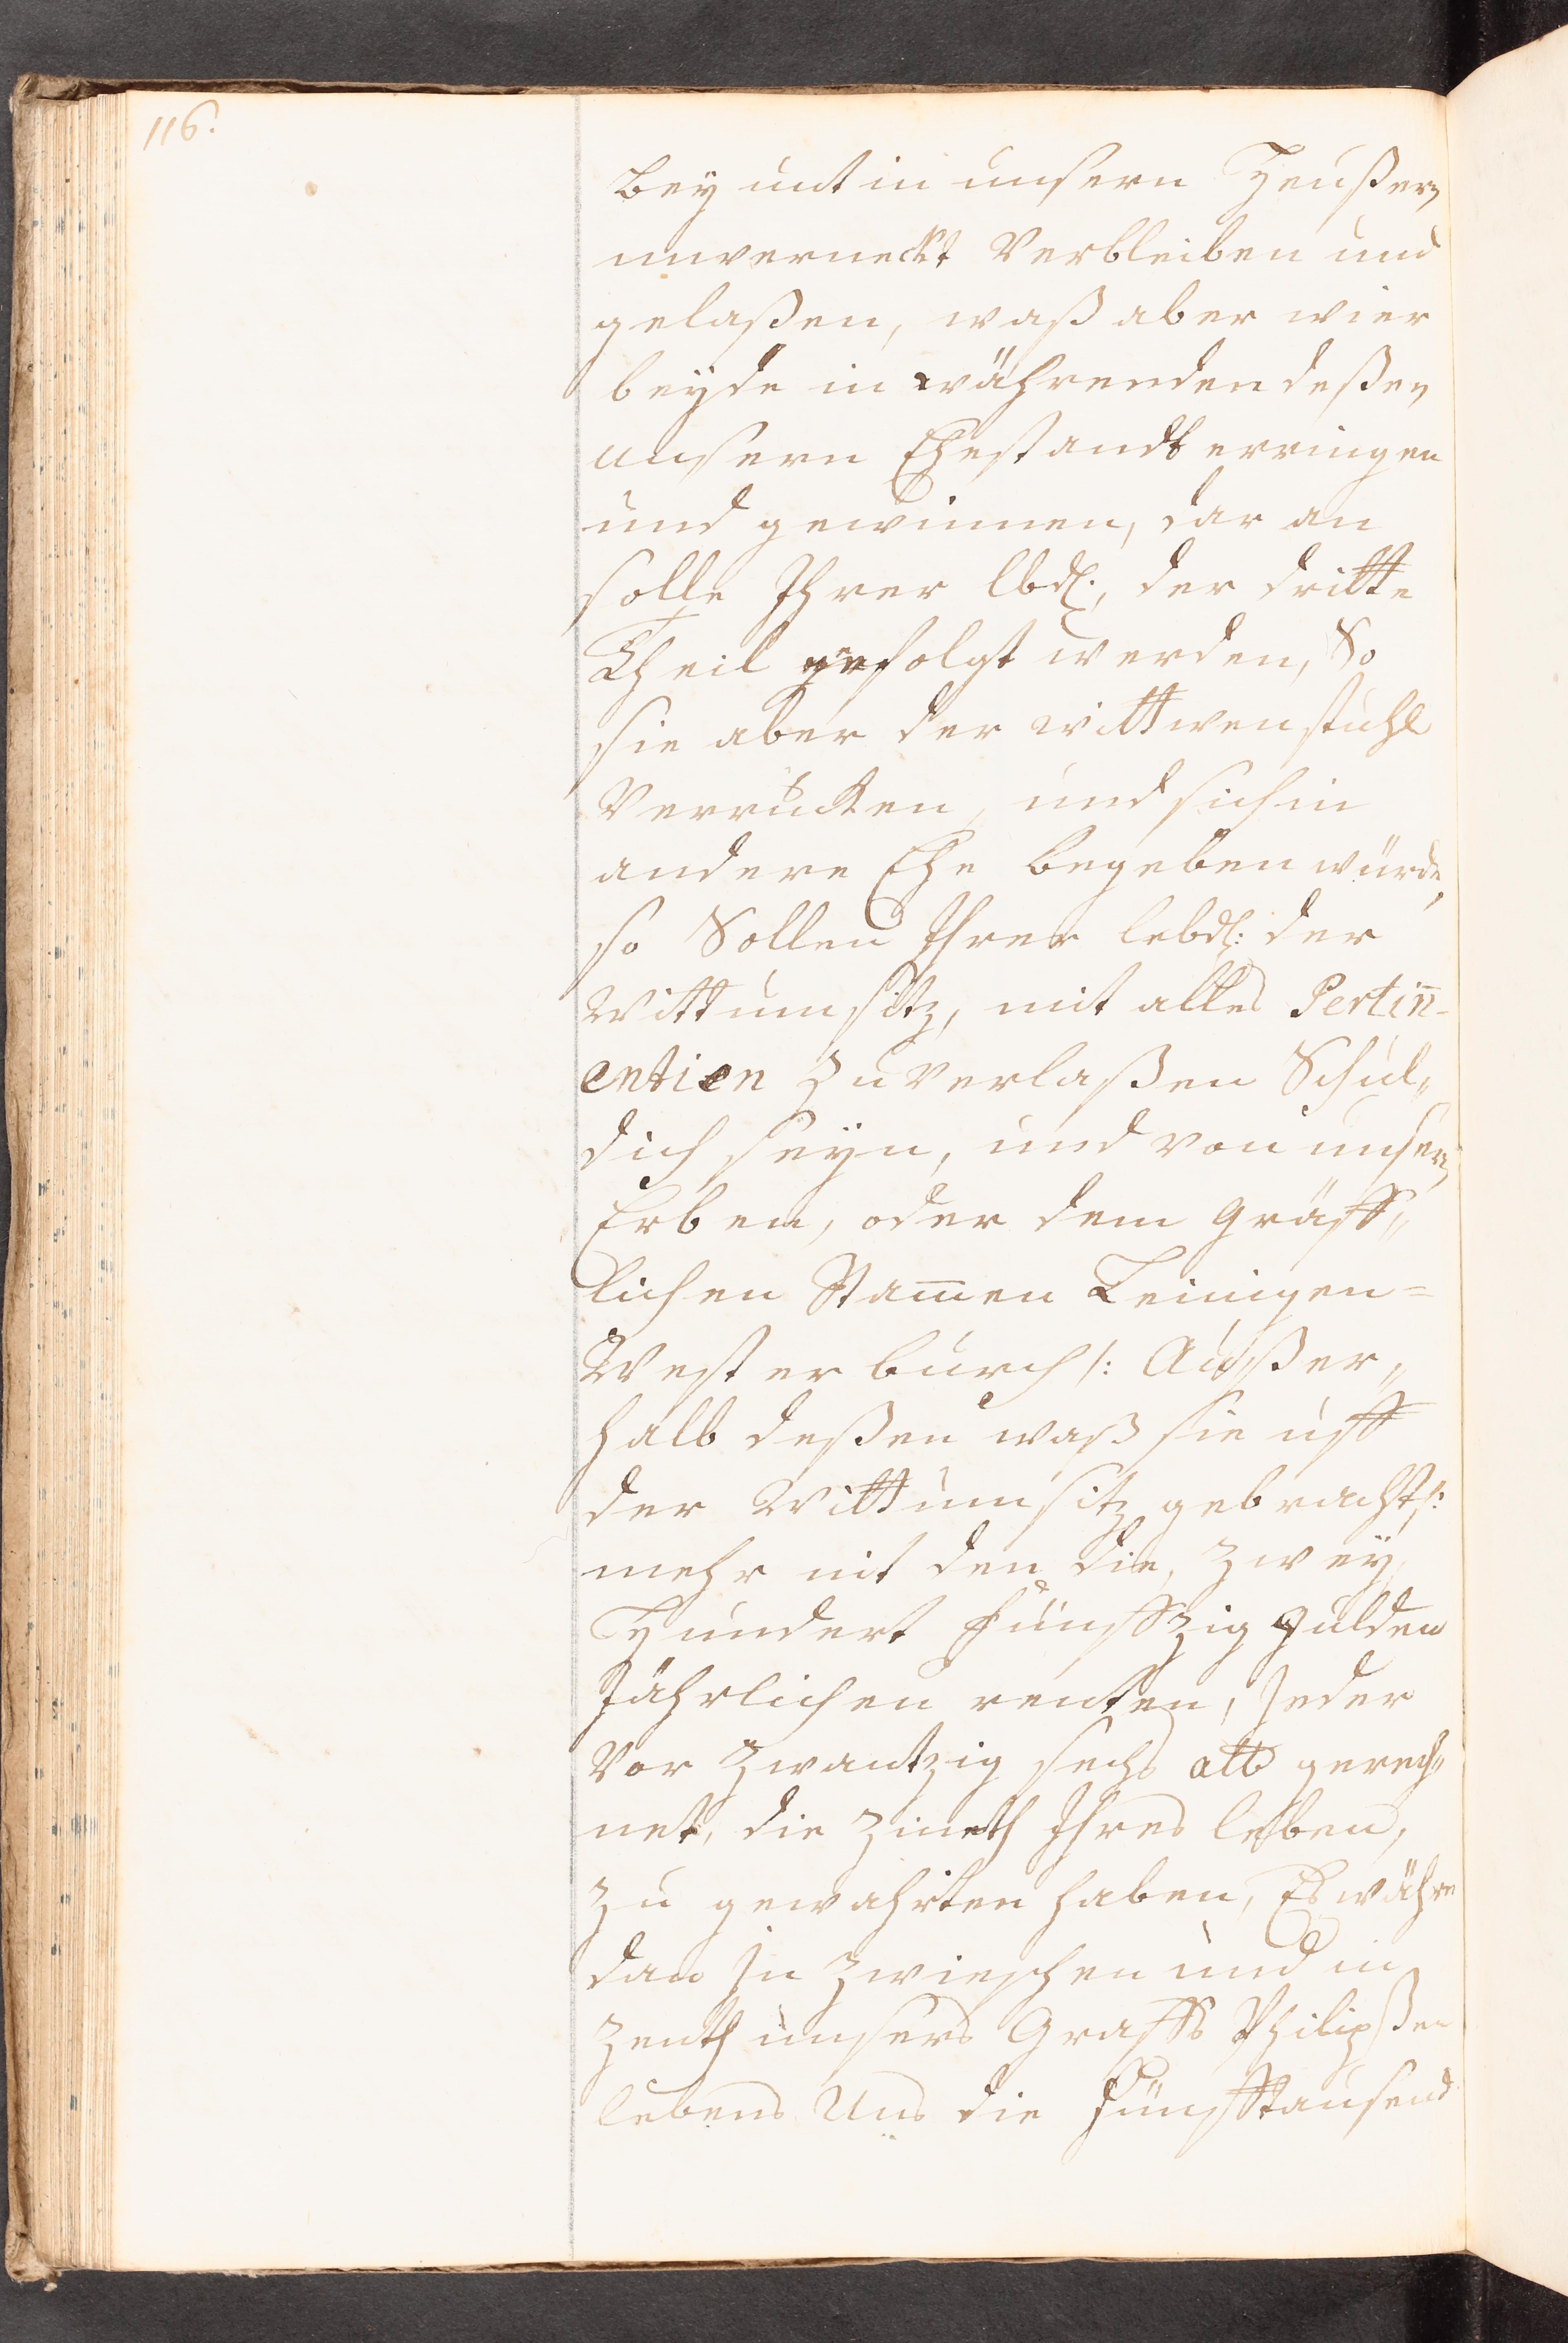 116.
bey unt in unsern Heußern
unverneckt Verbleiben und
gelaßen, waß aber wier
beyde in währenden deßen
unsern Ehestandt erringen
und gewinnen, dar an
solle Ihrer lbd., der dritte
Theil gefolgt werden, So
sie aber der wittwen stuhl
Verrucken, und sich in
andere Ehe begeben würde,
so Sollen Ihrer lebd: der
Wittumsitz, mit alles Pertin-
entien zu verlaßen Schul„
dich seyn, und von unsern
Erben, oder dem gräff„
lichen Stammen Leinigen=
Westerburch /: Außer„
halb deßen waß sie uff
der Wittumsitz gebracht /:
mehr nit den die, zwey
Hundert funffzig gulden
Jährlichen renten, Jeder
vor zwantzig sechs alb gerech„
net, die zineth Ihres leben,
zu gewahrten haben, Es währe
dan In zwieschen und in
zenth unsers Graffs Philipßen
lebens Uns die fünfftausend